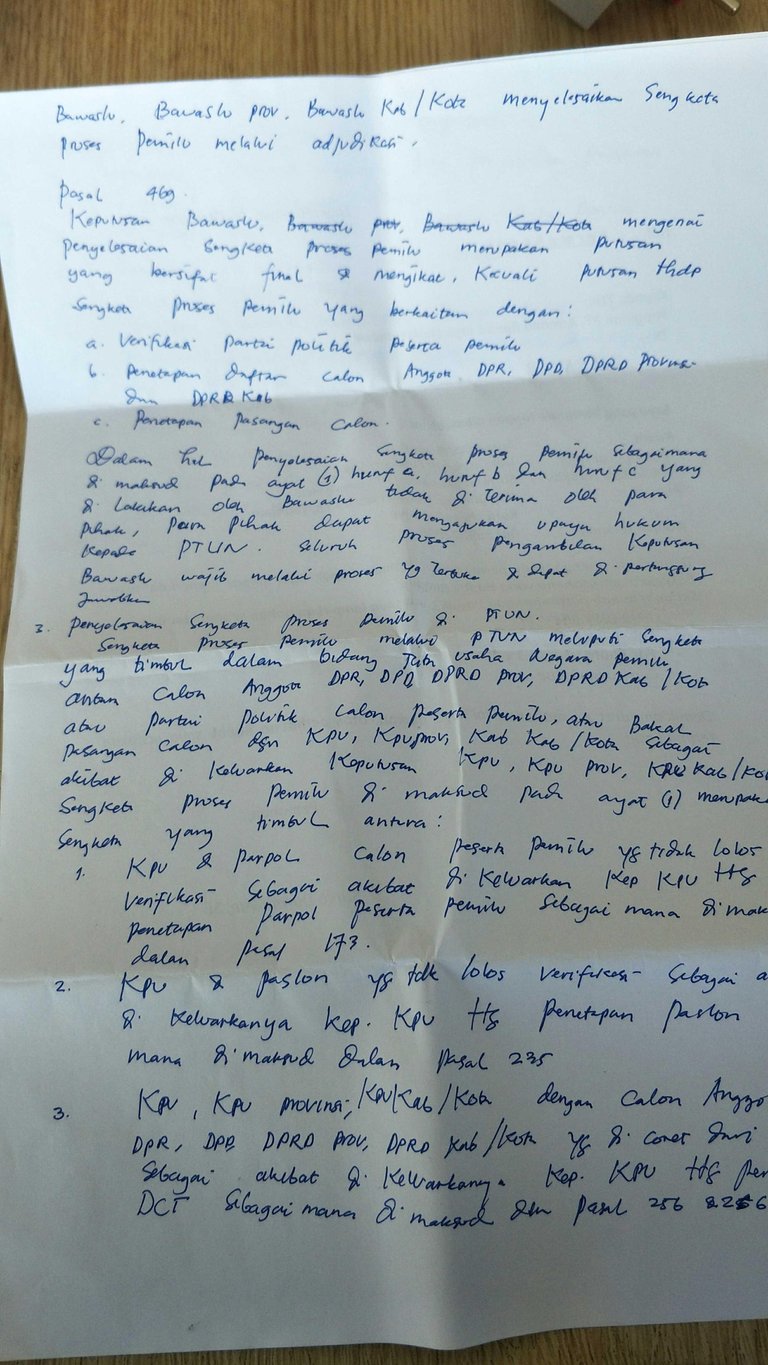 Bawaslu, Bawaslu prov, Bawaslu Kab/Kota menyelesaikan Sengketa
proses pemilu melalui adjudikasi.
Pasal 469.
Keputusan Bawaslu, Bawaslu prov, Bawaslu Kab/Kota mengenai
penyelesaian Sengketa proses pemilu merupakan putusan
yang bersifat final & mengikat, Kecuali putusan thdp
Sengketa proses pemilu yang berkaitan dengan:
a. Verifikasi partai politik peserta pemilu
b. Penetapan daftar calon Anggota DPR, DPD, DPRD Provinsi
dan DPRD Kab
c. Penetapan Pasangan Calon.
Dalam hal penyelesaian sengketa proses pemilu sebagaimana
di maksud pada ayat (1) huruf a, huruf b dan huruf c yang
di lakukan oleh Bawaslu tidak di terima oleh para
pihak, para pihak dapat mengajukan upaya hukum
kepada PTUN. Seluruh proses pengambilan Keputusan
Bawaslu wajib melalui proses yg terbuka & dapat di pertanggung
jawabkan
3. Penyelesaian Sengketa proses pemilu di PTUN.
Sengketa proses pemilu melalui PTUN meliputi Sengketa
yang timbul dalam bidang Tata usaha Negara pemilu
antara Calon Anggota DPR, DPD, DPRD prov, DPRD Kab/Kota
atau partai politik calon peserta pemilu, atau Bakal
pasangan calon dgn KPU, KPU prov, Kab Kab/Kota Sebagai
akibat di Keluarkan Keputusan KPU, KPU prov, KPU Kab/Ko
Sengketa proses pemilu di maksud pada ayat (1) merupaka
Sengketa yang timbul antara:
1. KPU & parpol calon peserta pemilu yg tidak lolos
Verifikasi Sebagai akibat di Keluarkan Kep KPU ttg
penetapan parpol peserta pemilu Sebagai mana di mak
dalam pasal 173.
2. KPU & paslon yg tdk lolos Verifikasi Sebagai a
di Keluarkanya Kep. KPU ttg penetapan paslon
mana di maksud dalam pasal 235
3. KPU, KPU provinsi, KPU Kab/Kota dengan calon Anggo
DPR, DPD, DPRD prov, DPRD Kab/Kota yg di coret dari
Sebagai akibat di Keluarkanya Kep. KPU ttg pen
DCT Sebagai mana di maksud dlm pasal 256 & 266